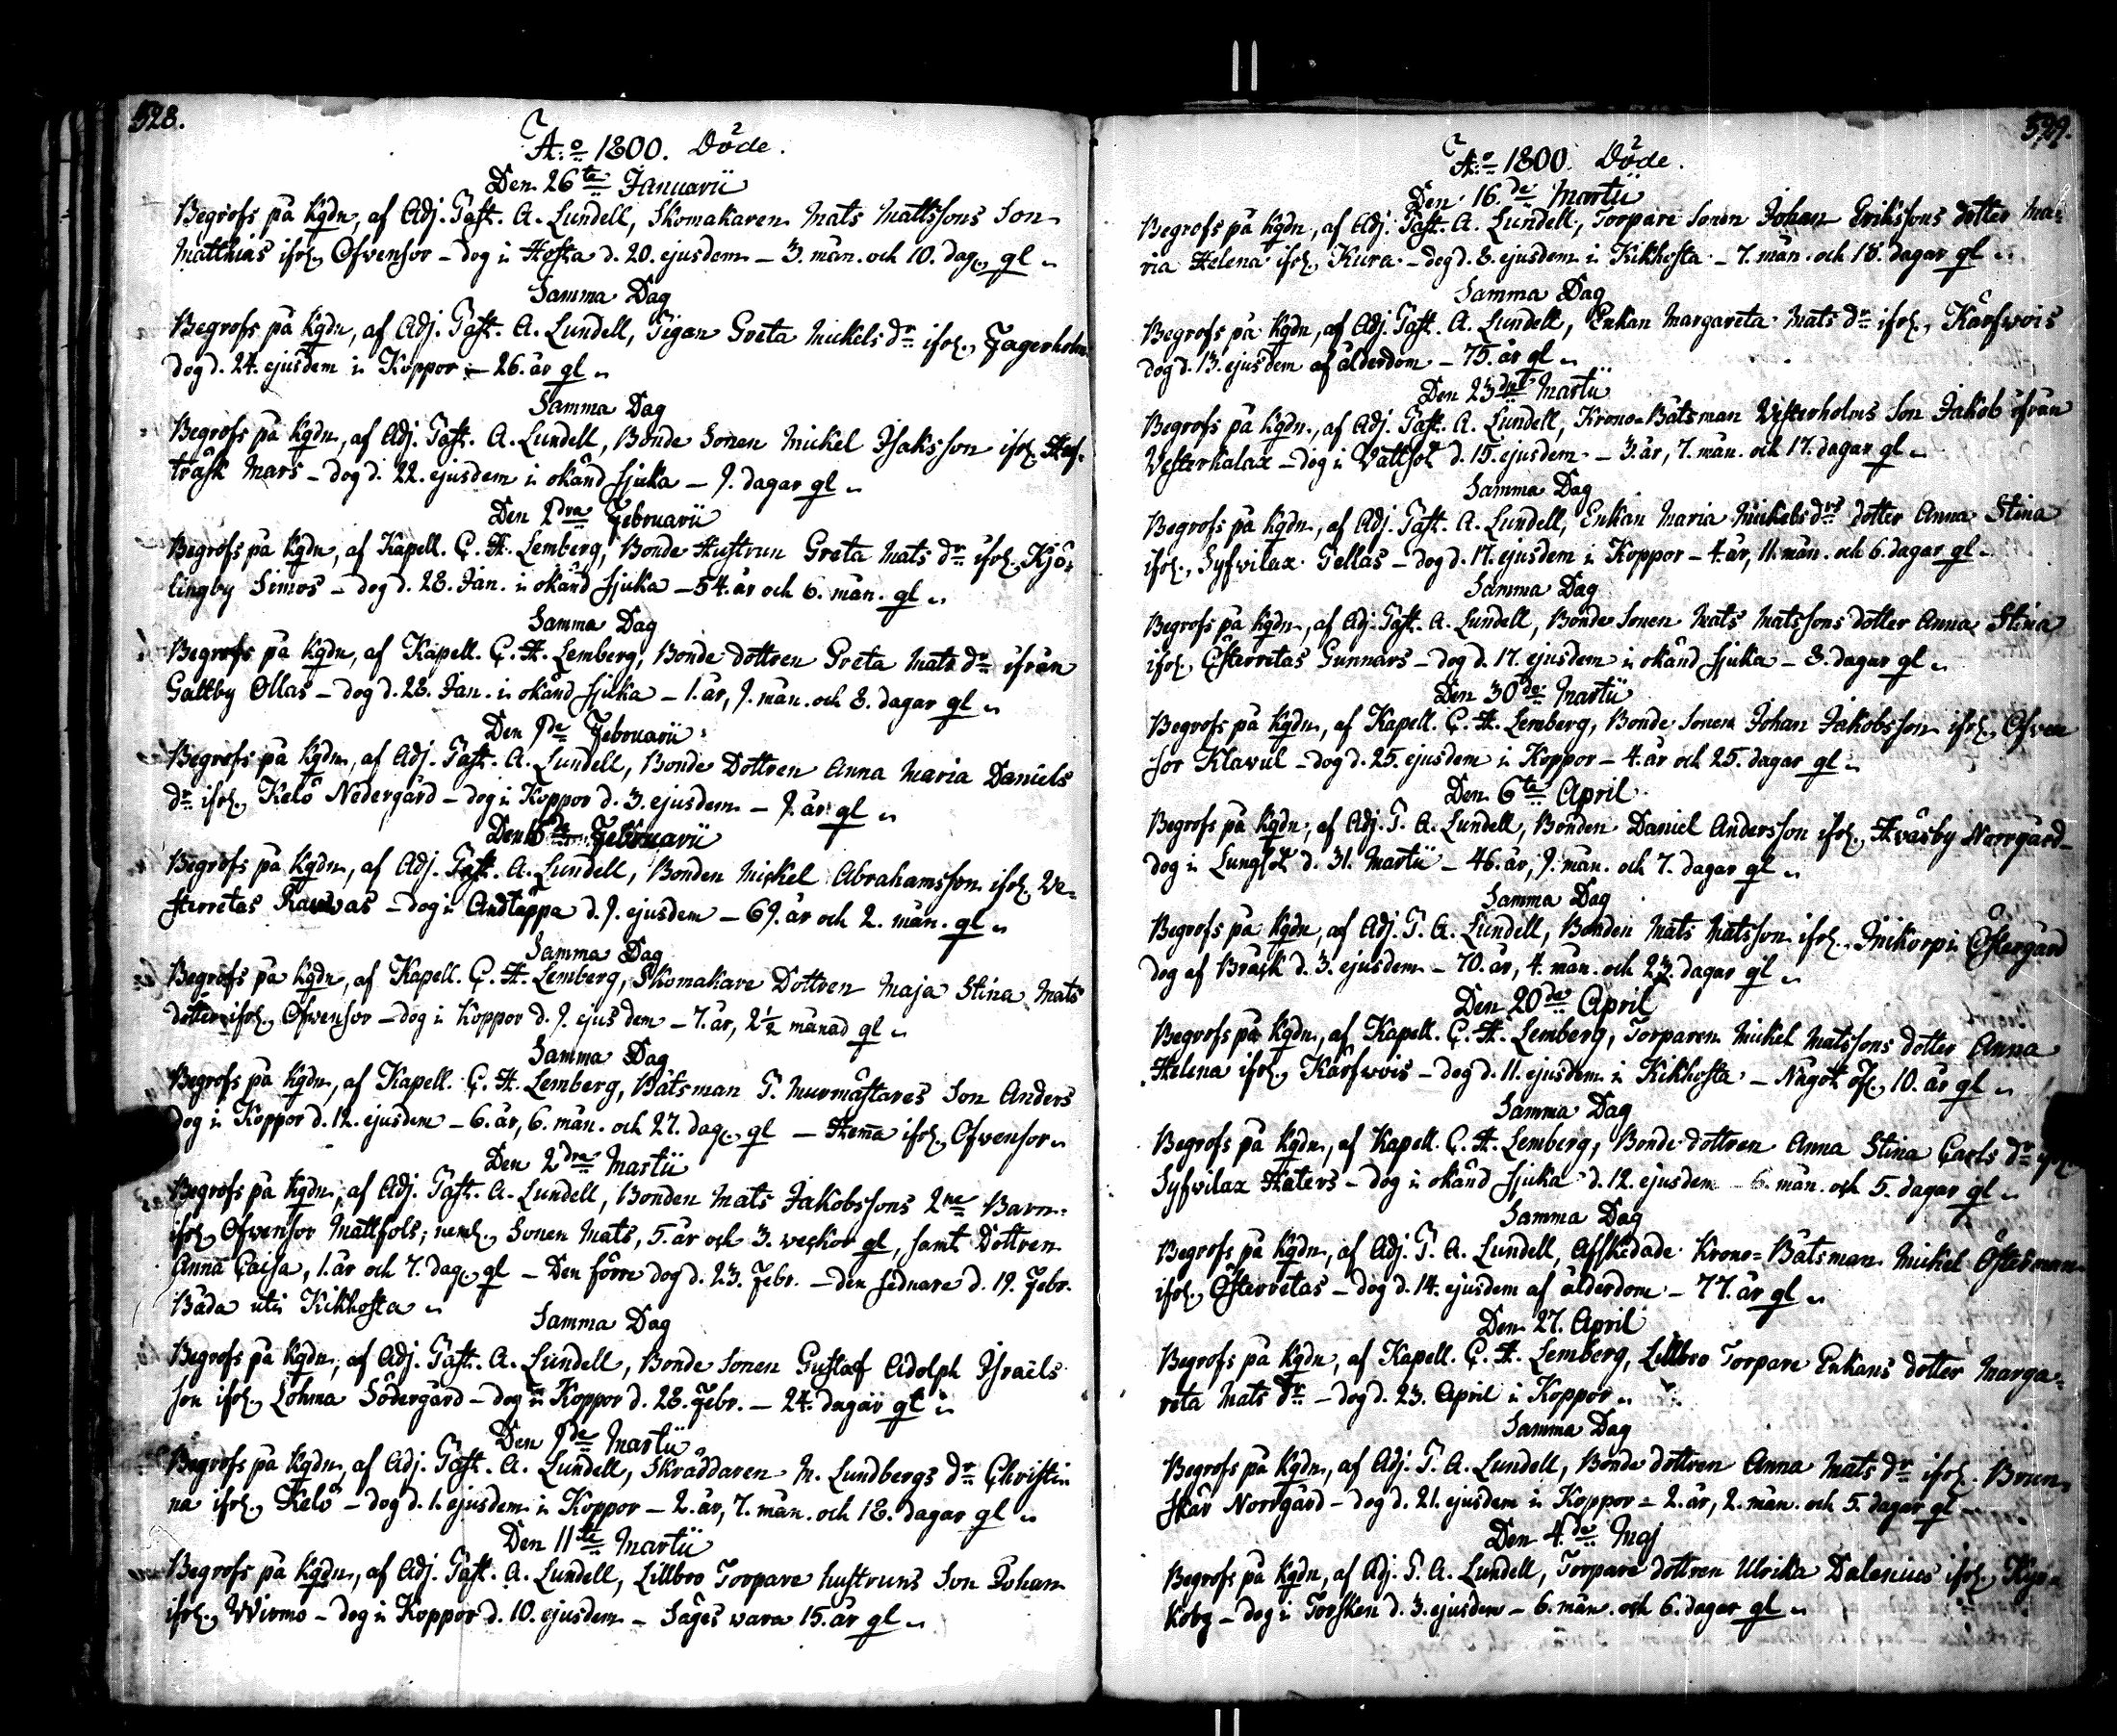 528.
A:o 1800. Döde.
Den 26te Januarii
Begrofs på kgdn, af Adj. Past. A. Lundell, Skomakaren Mats Mattssons Son
Matthias ifrå. Ofvensor – dog i Hosta d. 20. ejusdem – 3. mån. och 10. dag. gl
Samma Dag
Begrofs på kgdn, af Adj. Past. A. Lundell, Pigan Greta Mickels dr ifrå. Fagerholm
dog d. 24. ejusdem i Koppor – 26. år gl
Samma Dag
Begrofs på kgdn, af Adj. Past. A. Lundell, Bonde Sonen Mickel Isaksson ifrå.
träsk Mars – dog d. 22. ejusdem i okänd sjuka – 9. dagar gl
Den 2dra Februarii
Begrofs på kgdn, af Kapell. C. H. Lemberg, Bonde Hustrun Greta Mats dr ifrå. Kjö-
lingby Simos – dog d. 28. Jan. i okänd sjuka – 54. år och 6. mån. gl
Samma Dag
Begrofs på kgdn, af Kapell. C. H. Lemberg, Bonde dottren Greta Mats dr ifrån
Galtby Ollas – dog d. 28. Jan. i okänd sjuka – 1. år, 9. mån. och 8. dagar gl
Den 9de Februarii
Begrofs på kgdn, af Adj. Past. A. Lundell, Bonde Dottren Anna Maria Daniels
dr ifrå. Kelö Nedergård – dog i Koppor d. 3. ejusdem – 9. år gl
Den 16de Februarii
Begrofs på kgdn, af Adj. Past. A. Lundell, Bonden Mickel Abrahamsson ifrå. We-
sterretas – dog i Andtäppa d. 9. ejusdem – 69. år och 2. mån. gl
Samma Dag
Begrofs på kgdn, af Kapell. C. H. Lemberg, Skomakare Dottren Maja Stina Mats
dotter ifrå. Ofvensor – dog i Koppor d. 9. ejusdem – 7. år, 2½ månad gl
Samma Dag
Begrofs på kgdn, af Kapell. C. H. Lemberg, Båtsman P. Murmästares Son Anders
dog i Koppor d. 12. ejusdem – 6. år, 6. mån. och 27. dag. gl – Hema ifrå. Ofvensor
Den 2dra Martii
Begrofs på kgdn, af Adj. Past. A. Lundell, Bonden Mats Jakobssons 2ne Barn
ifrå. Ofvensor Mattsols; neml. Sonen Mats, 5. år och 3. veckor gl, samt Dottren
Anna Caisa, 1. år och 7. dag. gl – Den förre dog d. 23. Febr. – den sednare d. 19. Febr.
Båda uti Kikhosta
Samma Dag
Begrofs på kgdn, af Adj. Past. A. Lundell, Bonde Sonen Gustaf Adolph Israels
son ifrå. Lohma Södergård – dog i Koppor d. 28. Febr. – 24. dagar gl
Den 9de Martii
Begrofs på kgdn, af Adj. Past. A. Lundell, Skräddaren M. Lundbergs dr Christi
na ifrå. Kelö – dog d. 1. ejusdem i Koppor – 2. år, 7. mån. och 18. dagar gl
Den 11te Martii
Begrofs på kgdn, af Adj. Past. A. Lundell, Lillbro Torpare hustruns Son Johan
ifrå. Wirmo – dog i Koppor d. 10. ejusdem – Säges wara 15. år gl
529.
A:o 1800. Döde.
Den 16de Martii
Begrofs på kgdn, af Adj. Past. A. Lundell, Torpare Sonen Johan Erikssons dotter Ma-
ria Helena ifrå. Kura – dog d. 8. ejusdem i Kikhosta – 7. mån. och 18. dagar gl
Samma Dag
Begrofs på kgdn, af Adj. Past. A. Lundell, Enkan Margareta Mats dr ifrå. Kärfwois
dog d. 13. ejusdem af ålderdom – 75. år gl
Den 23 Martii
Begrofs på kgdn, af Adj. Past. A. Lundell, Krono-Båtsman Westerholms Son Jakob ifrån
Westerkalax – dog i Vattsot d. 15. ejusdem – 3. år, 7. mån. och 17. dagar gl
Samma Dag
Begrofs på kgdn, af Adj. Past. A. Lundell, Enkan Maria Mickelsdrs dotter Anna Stina
ifrå. Syfvilax Pellas – dog d. 17. ejusdem i Koppor – 4. år, 11. mån. och 6. dagar gl
Samma Dag
Begrofs på kgdn, af Adj. Past. A. Lundell, Bonde Sonen Mats Matssons dotter Anna Stina
ifrå. Österretas Gunnars – dog d. 17. ejusdem i okänd sjuka – 8. dagar gl
Den 30de Martii
Begrofs på kgdn, af Kapell. C. H. Lemberg, Bonde Sonen Johan Jakobsson ifrå. Ofven
sor Klavul – dog d. 25. ejusdem i Koppor – 4. år och 25. dagar gl
Den 6te April
Begrofs på kgdn, af Adj. P. A. Lundell, Bonden Daniel Andersson ifrå. Hväsby Norrgård
dog i Lungsot d. 31. Martii – 46. år, 9. mån. och 7. dagar gl
Samma Dag
Begrofs på kgdn, af Adj. P. A. Lundell, Bonden Mats Matsson ifrå. Östergård
dog af Bråck d. 3. ejusdem – 70. år, 4. mån. och 23. dagar gl
Den 20de April
Begrofs på kgdn, af Kapell. C. H. Lemberg, Torparen Mickel Matssons dotter Anna
Helena ifrå. Kärfwois – dog d. 11. ejusdem i Kikhosta – Något öf. 10. år gl
Samma Dag
Begrofs på kgdn, af Kapell. C. H. Lemberg, Bonde dottren Anna Stina Carls dr
Syfvilax Haters – dog i okänd sjuka d. 12. ejusdem – 6. mån. och 5. dagar gl
Samma Dag
Begrofs på kgdn, af Adj. P. A. Lundell, Afskedade Krono-Båtsman Mickel Österman
ifrå. Österretas – dog d. 14. ejusdem af ålderdom – 77. år gl
Den 27. April
Begrofs på kgdn, af Kapell. C. H. Lemberg, Lillbro Torpare Enkans dotter Marga-
reta Mats dr – dog d. 23. April i Koppor
Samma Dag
Begrofs på kgdn, af Adj. P. A. Lundell, Bonde dottren Anna Mats dr ifrå. Brun
skär Norrgård – dog d. 21. ejusdem i Koppor – 2. år, 2. mån. och 5. dagar gl
Den 4.de Maj
Begrofs på kgdn, af Adj. P. A. Lundell, Torpare dottren Ulrika Dalenius ifrå. Kyr-
– dog i Torsken d. 3. ejusdem – 6. mån. och 6. dagar gl